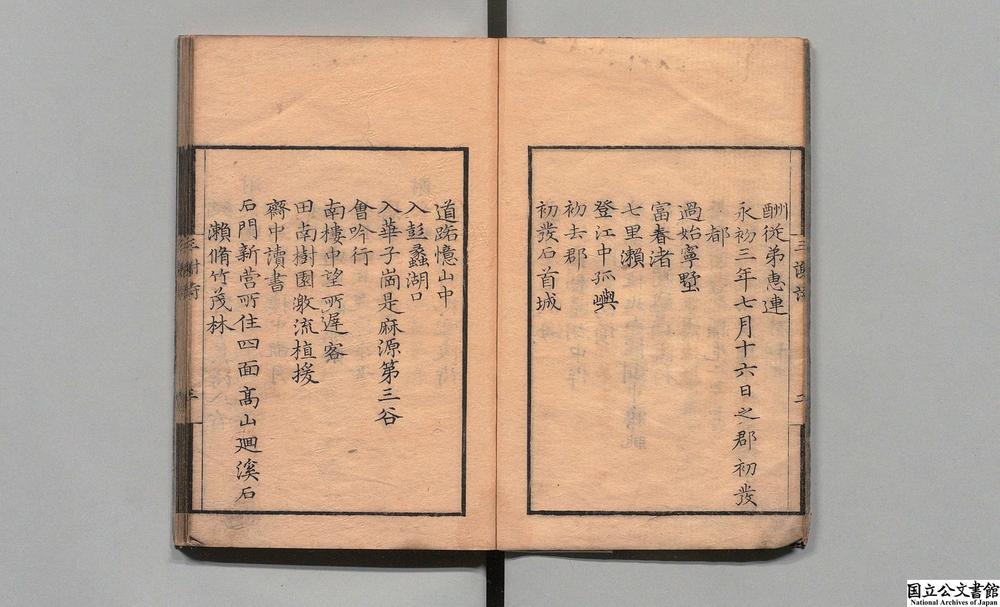 酬従弟惠連
永初三年七月十六日之郡初發
都
過始寧墅
富春渚
七里瀨
登江中孤嶼
初去郡
初發石首城
三謝詩
二
道路憶山中
入彭蠡湖口
入華子崗是麻源第三谷
會吟行
南樓中望所遲客
田南樹園激流植援
齋中讀書
石門新營所住四面髙山廻溪石
瀨脩竹茂林
三謝詩
三
国立公文書館
National Archives of Japan